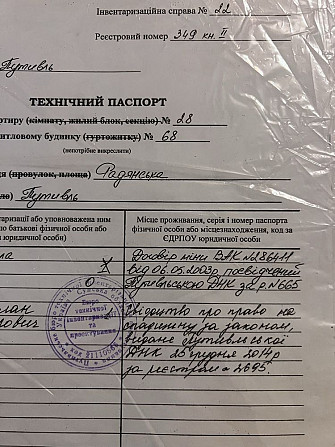 Інвентаризаційна справа № 22
Реєстровий номер 349 кн. ІІ
Путивль
ТЕХНІЧНИЙ ПАСПОРТ
артиру (кімнату, жилий блок, секцію) № 28
итловому будинку (гуртожитку) № 68
(непотрібне викреслити)
(провулок, площа) Радянська
Путивль
таризації або уповноважена ним
бо батькові фізичної особи або
юридичної особи)
Місце проживання, серія і номер паспорта
фізичної особи або місцезнаходження, код за
ЄДРПОУ юридичної особи
Договір міни
від 06.05.2003р. посвідчений
Путивльською ДНК за р. №665
Свідоцтво про право на
спадщину за законом,
видане Путивльської
ДНК 25 грудня 2014р
за реєстром 2695.
Бюро
технічної
інвентаризації
та